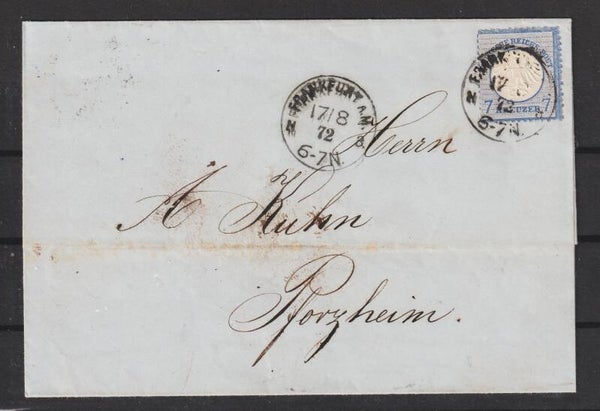 FRANKFURT A.M.
17/8
72
6-7N.
FRANKF
17
72
6-7N.
7 KREUZER 7
Herrn
A Kuhn
Pforzheim.